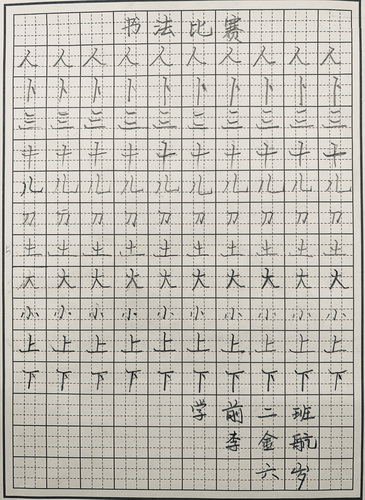 书法比赛
人人人人人人人人人人
卜卜卜卜卜卜卜卜卜卜
三三三三三三三三三三
牛牛牛牛牛牛牛牛牛牛
儿儿儿儿儿儿儿儿儿儿
刀刀刀刀刀刀刀刀刀刀
土土土土土土土土土土
大大大大大大大大大大
小小小小小小小小小小
上上上上上上上上上上
下下下下下下下下下下
学前二班
李金航
六岁